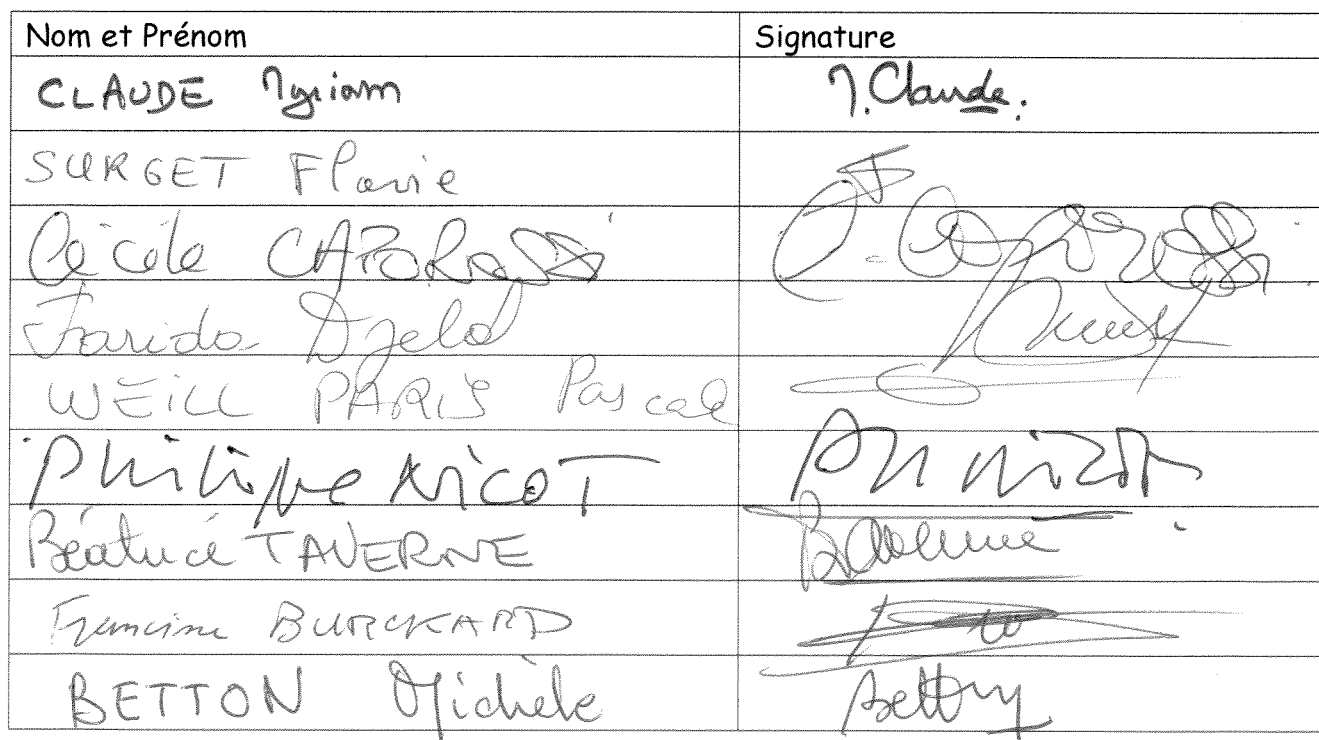 Nom et Prénom Signature
CLAUDE Myriam M. Claude.
SURGET Flavie
Cécile CAPOROSSI C. Caporossi
Farida Djeld
WEILL PARIS Pascale
Philippe NICOT Ph nicot
Béatrice TAVERNE BTaverne
Francine BURCKARD
BETTON Michèle Betton